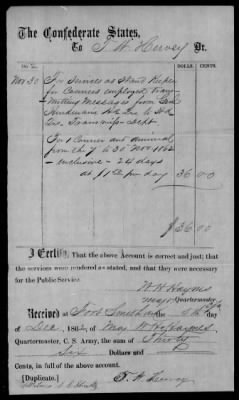 The Confederate States,
To T. W. Hervey Dr.
DOLLS. CENTS.
1862
Nov 30 For Services as Stand Keeper
for Couriers employed trans-
mitting Messages from Genl
Hindmans Hd Qrs to Hd
Qrs Transmiss Dept
For 1 Courier and animal
from the 7 to 30 Nov 1862
inclusive - 24 days
at 1.50 per day 36 00
$36.00
I Certify, That the above Account is correct and just; that
the services were rendered as stated, and that they were necessary
for the Public Service.
W H Haynes
Major Quartermaster.
Received at Fort Smith the day
of Dec 1862 of Maj W H Haynes
Quartermaster, C. S. Army, the sum of Thirty
Six Dollars and
Cents, in full of the above account.
[Duplicate.] T. W. Hervey